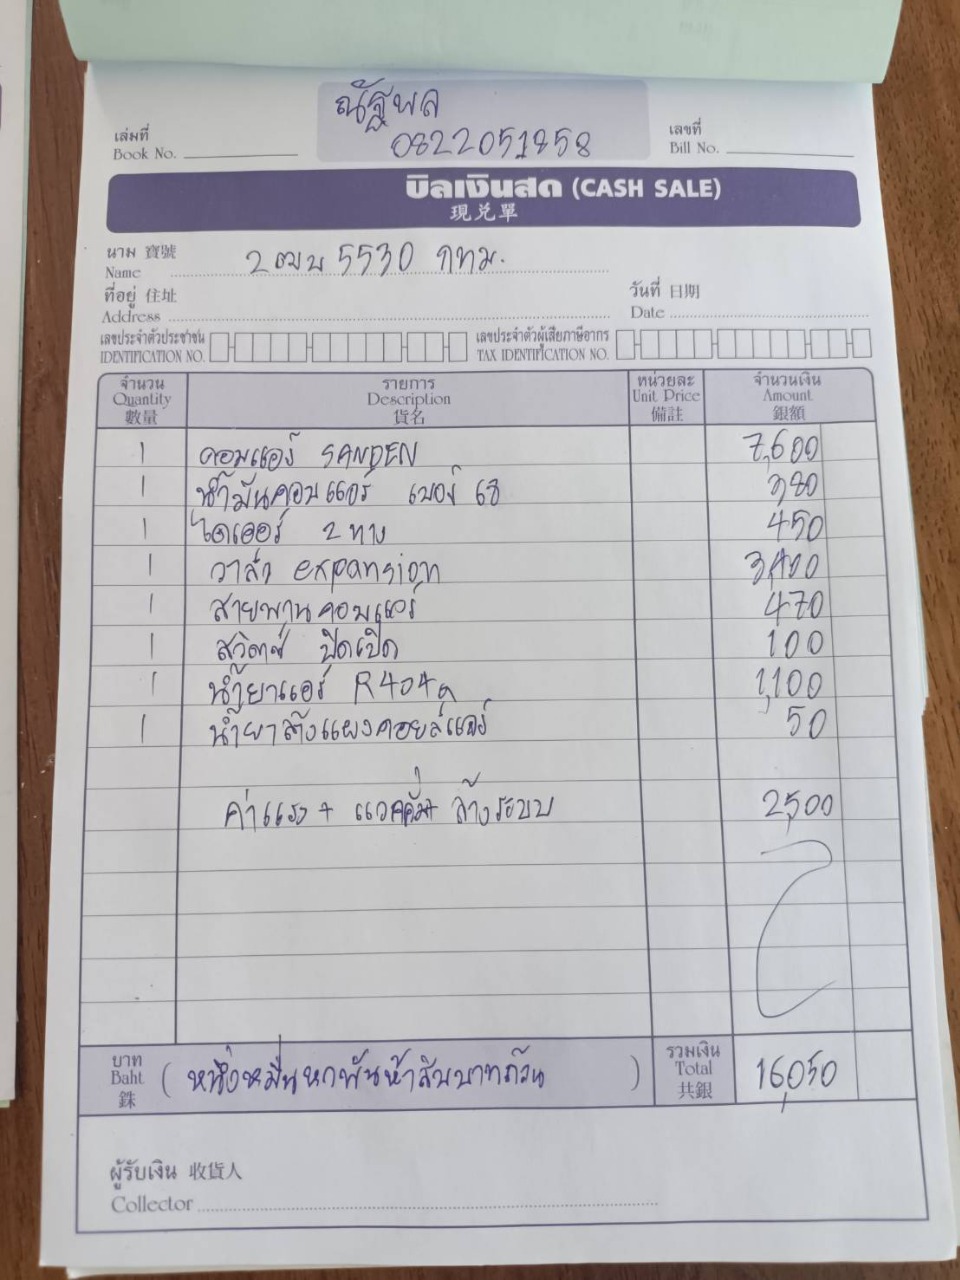 ณัฐพล
0822051858
เล่มที่
Book No.
เลขที่
Bill No.
บิลเงินสด (CASH SALE)
現兌單
นาม 寶號
Name 2ฒบ 5530 กทม.
ที่อยู่ 住址
Address
วันที่ 日期
Date
เลขประจำตัวประชาชน
IDENTIFICATION NO.
เลขประจำตัวผู้เสียภาษีอากร
TAX IDENTIFICATION NO.
จำนวน รายการ หน่วยละ จำนวนเงิน
Quantity Description Unit Price Amount
數量 貨名 備註 銀額
1 คอมแอร์ SANDEN 7,600
1 น้ำมันคอมแอร์ เบอร์ 68 380
1 ไดเออร์ 2 ทาง 450
1 วาล์ว expansion 3,400
1 สายพานคอมแอร์ 470
1 สวิตซ์ ปิดเปิด 100
1 น้ำยาแอร์ R404a 1,100
1 น้ำยาล้างแผงคอยล์แอร์ 50
ค่าแรง + แวคคั่ม ล้างระบบ 2,500
บาท
Baht
銖
( หนึ่งหมื่นหกพันห้าสิบบาทถ้วน )
รวมเงิน
Total 16,050
共銀
ผู้รับเงิน 收貨人
Collector